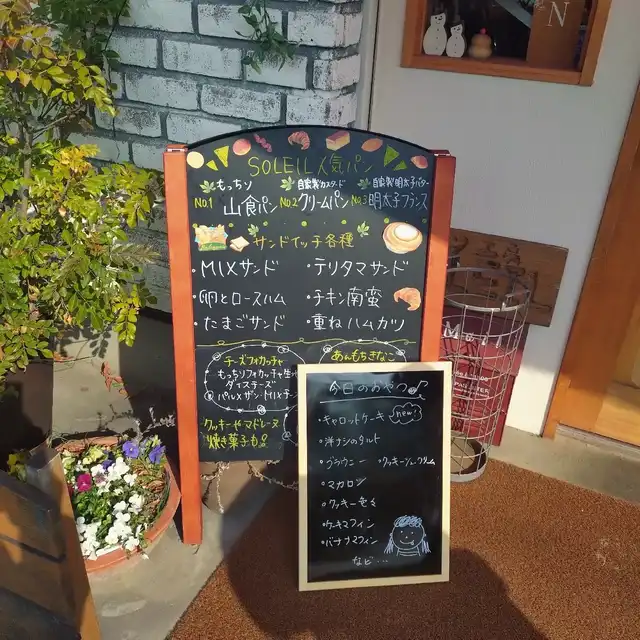 N
SOLEIL人気パン
もっちり 自家製カスタード 自家製明太子バター
No.1 山食パン No.2 クリームパン No.3 明太子フランス
サンドイッチ各種
・MIXサンド ・テリタマサンド
・卵とロースハム ・チキン南蛮
・たまごサンド ・重ねハムカツ
チーズフォカッチャ
もっちりフォカッチャ生
ダイスチーズ
あんもちきなこ
クッキーやマドレーヌ
焼き菓子も
今日のおやつ♪
・キャロットケーキ new!
・洋ナシのタルト
・ブラウニー ・クッキーシュークリーム
・マカロン
・クッキー色々
・ケーキマフィン
・バナナマフィン
など…